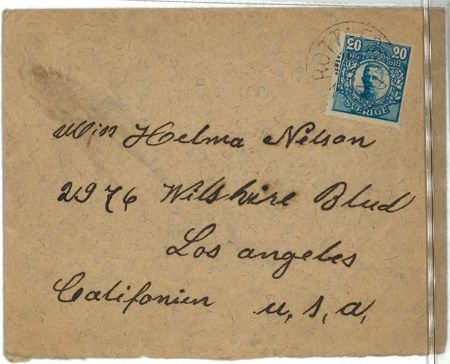 ROTT
20 20
SVERIGE
Miss Helma Nelson
2976 Wilshire Blvd
Los angeles
Califonien u, s, a,